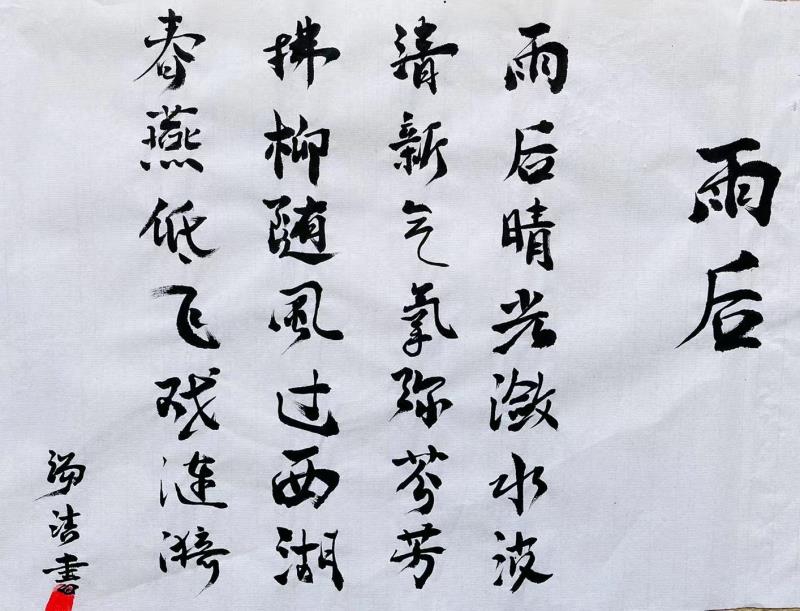 雨后
雨后晴光潋水波
清新气氧弥芬芳
拂柳随风过西湖
春燕低飞戏涟漪
洁書